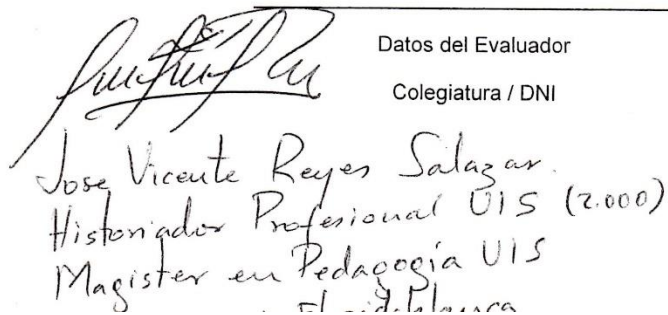 Datos del Evaluador
Colegiatura / DNI
Jose Vicente Reyes Salazar.
Historiador Profesional UIS (2.000)
Magister en Pedagogía UIS
Floridablanca